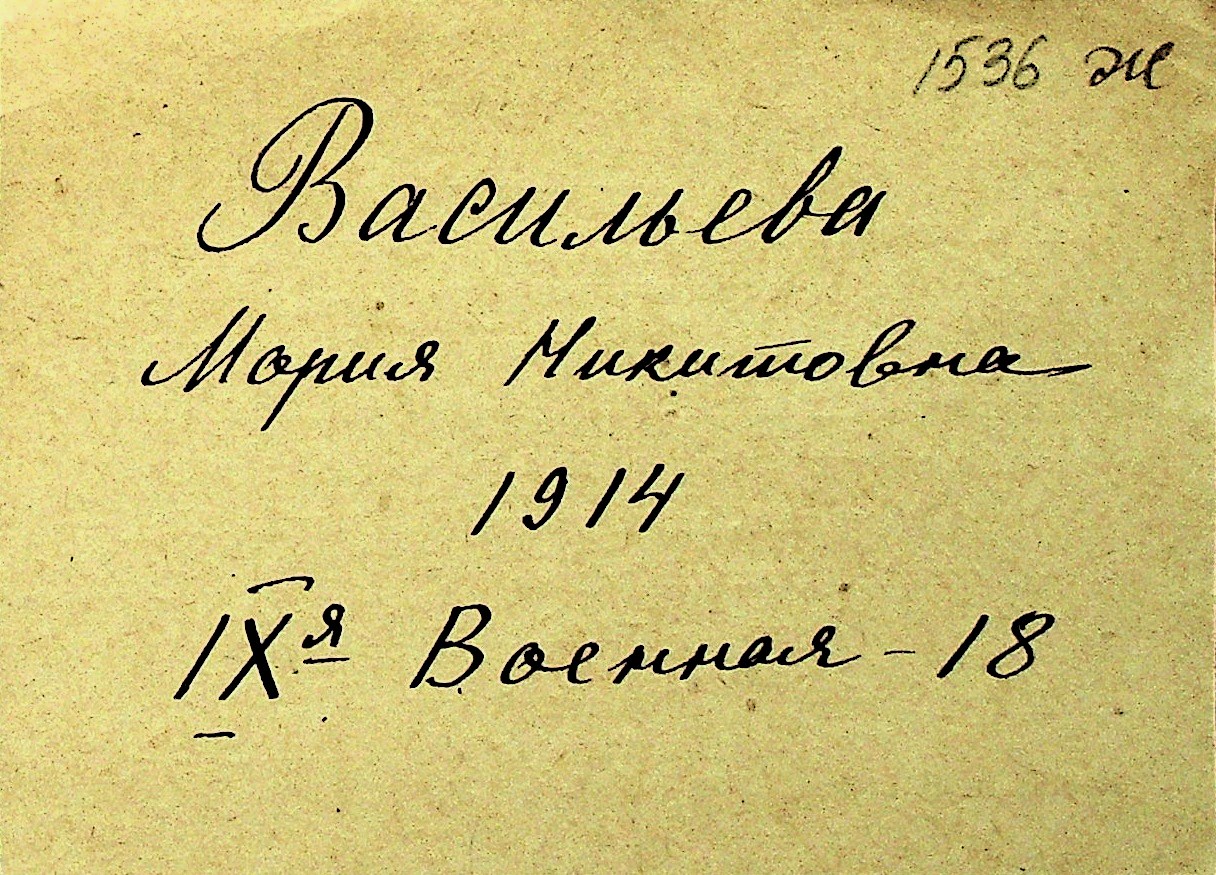 1536 ж
Васильева
Мария Никитовна
1914
IXя Военная - 18